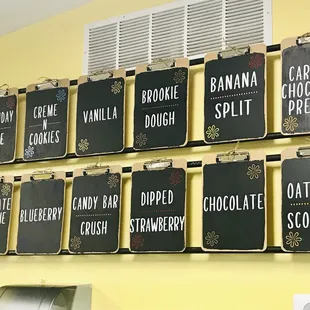 DAY
CREME
N
COOKIES
VANILLA
BROOKIE
DOUGH
BANANA
SPLIT
CAR
CHOC
PRE
BLUEBERRY
CANDY BAR
CRUSH
DIPPED
STRAWBERRY
CHOCOLATE
OAT
SCO